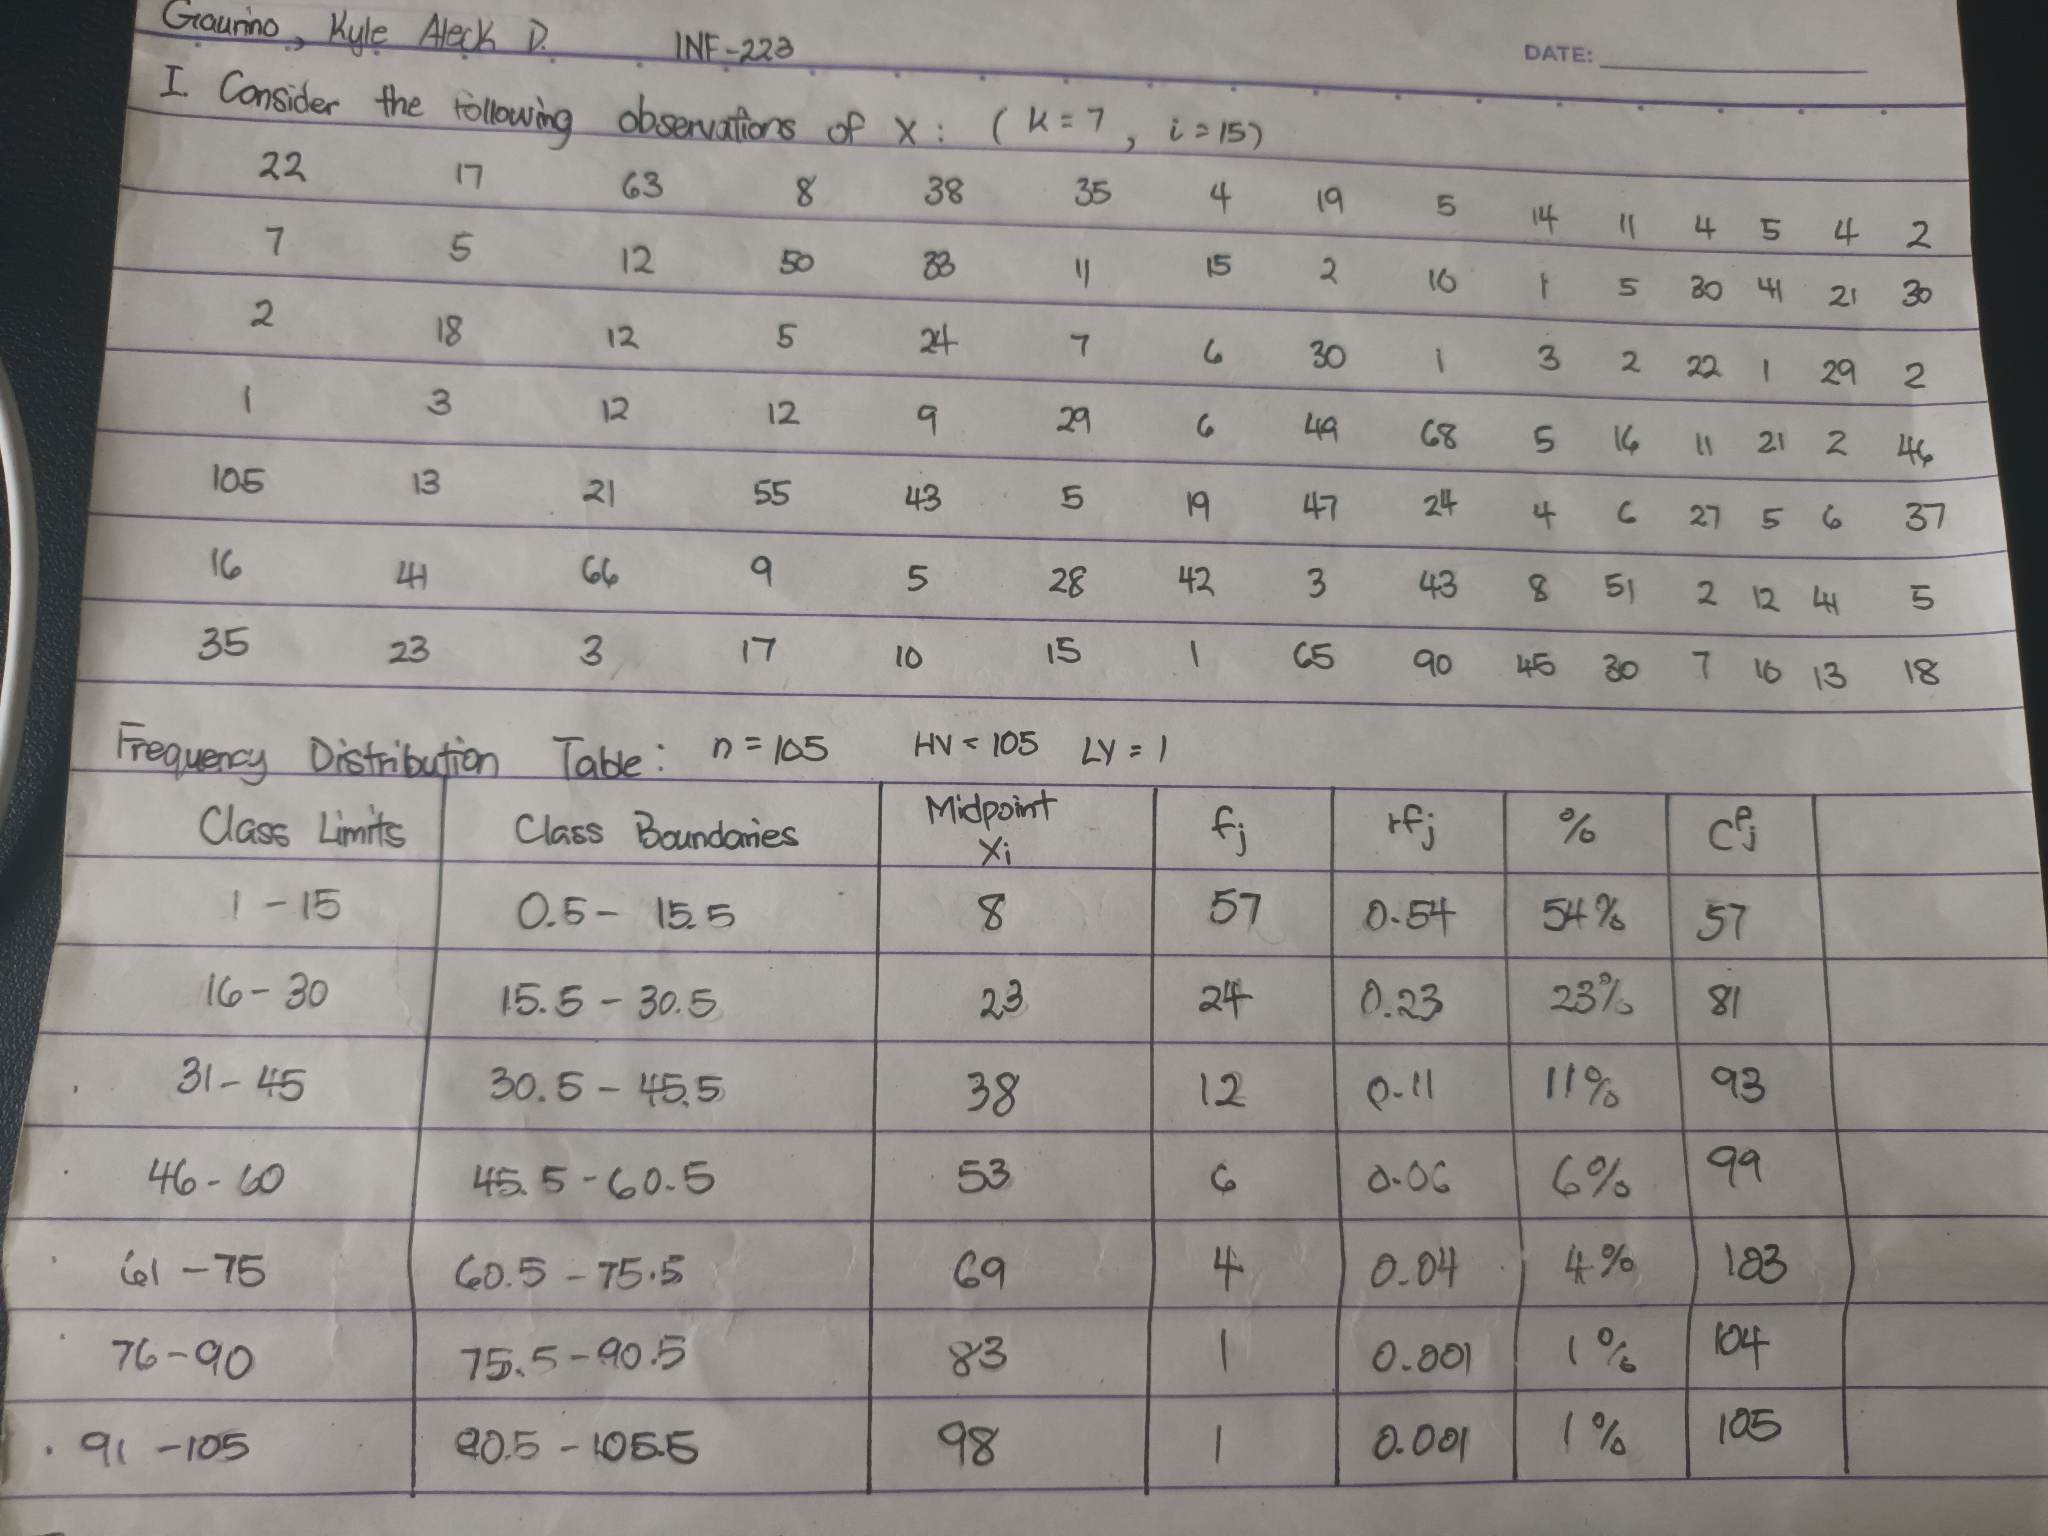 Gaurino, Kyle Aleck D. INF-223 DATE:
I. Consider the following observations of x : ( k = 7 , i = 15)
22 17 63 8 38 35 4 19 5 14 11 4 5 4 2
7 5 12 50 33 11 15 2 10 1 5 30 41 21 30
2 18 12 5 24 7 6 30 1 3 2 22 1 29 2
1 3 12 12 9 29 6 49 68 5 16 11 21 2 46
105 13 21 55 43 5 19 47 24 4 6 27 5 6 37
16 41 66 9 5 28 42 3 43 8 51 2 12 41 5
35 23 3 17 10 15 1 65 90 45 30 7 10 13 18
Frequency Distribution Table : n = 105 HV = 105 LV = 1
Class Limits Class Boundaries Midpoint Xi fj rfj % cfj
1 - 15 0.5 - 15.5 8 57 0.54 54% 57
16 - 30 15.5 - 30.5 23 24 0.23 23% 81
31 - 45 30.5 - 45.5 38 12 0.11 11% 93
46 - 60 45.5 - 60.5 53 6 0.06 6% 99
61 - 75 60.5 - 75.5 69 4 0.04 4% 103
76 - 90 75.5 - 90.5 83 1 0.001 1% 104
91 - 105 90.5 - 105.5 98 1 0.001 1% 105